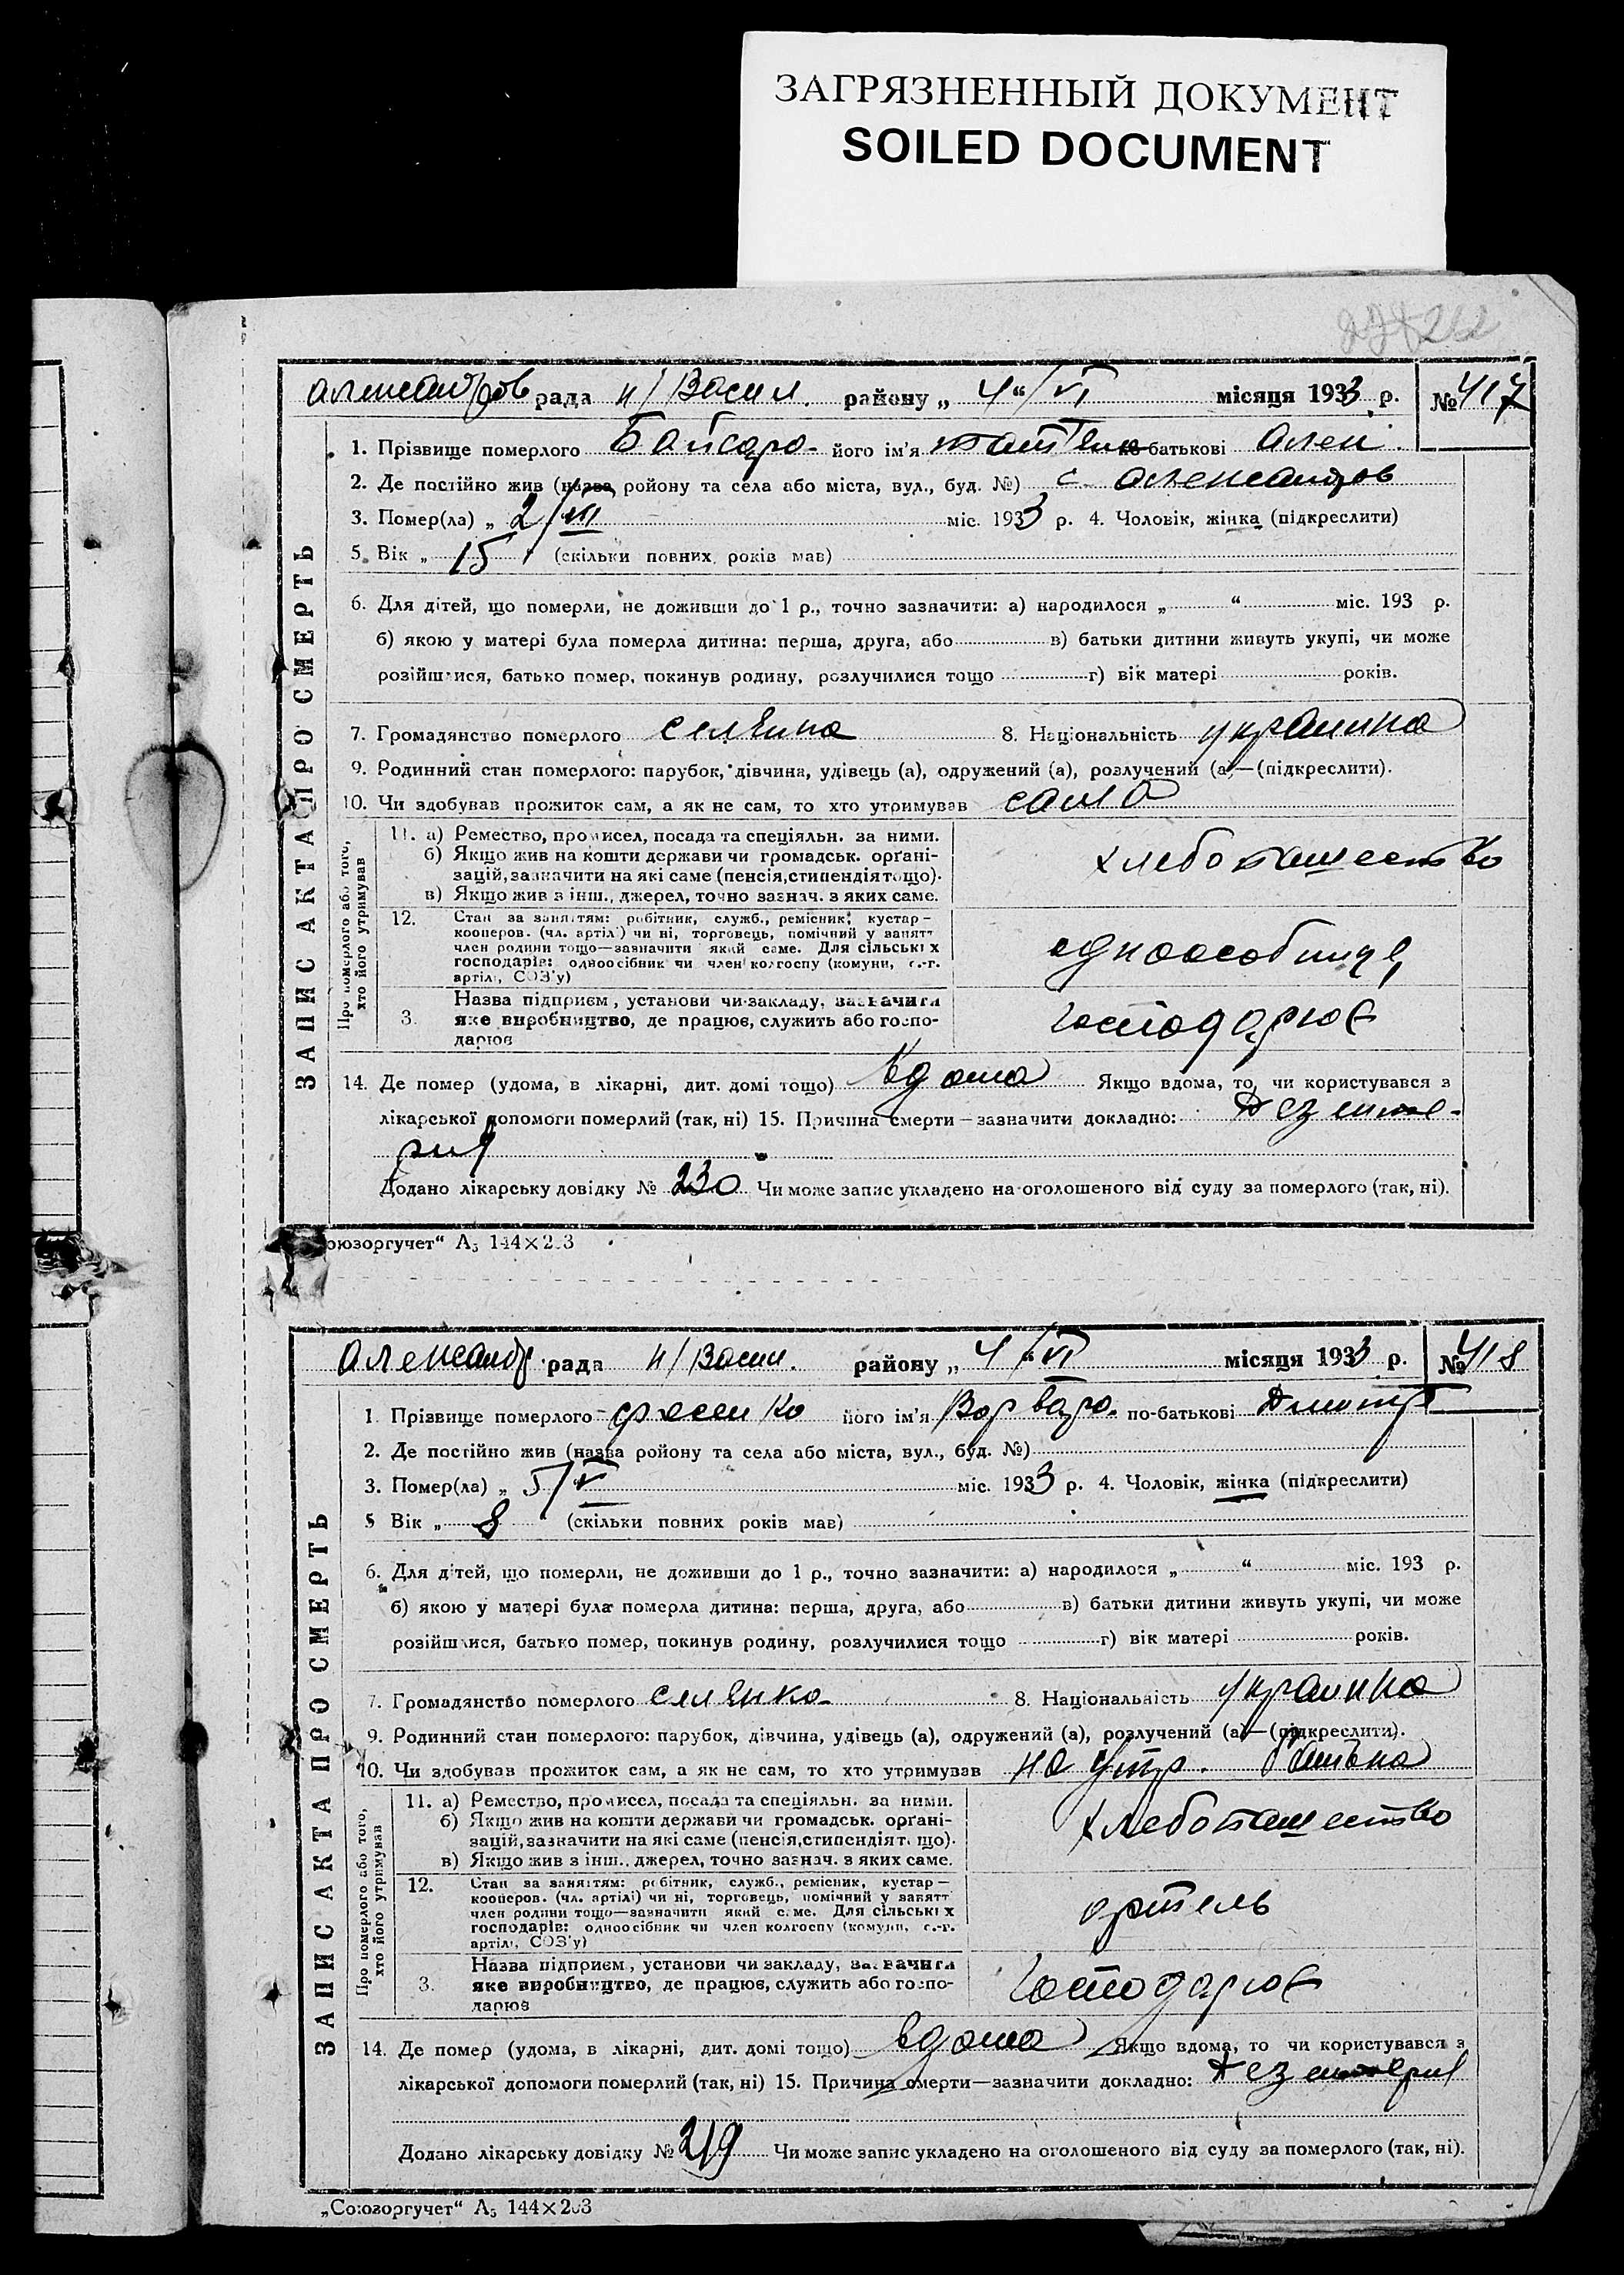 ЗАГРЯЗНЕННЫЙ ДОКУМЕНТ
SOILED DOCUMENT
262
Александров рада н/Васил. району „ 4 “ / VI місяця 1933 р. № 417
ЗАПИС АКТА ПРО СМЕРТЬ
1. Прізвище померлого Байсара його ім'я татяна по батькові Алек.
2. Де постійно жив (назва ройону та села або міста, вул., буд. №) с. Александров
3. Помер(ла) „ 2/VI міс. 1933 р. 4. Чоловік, жінка (підкреслити)
5. Вік „ 15 (скільки повних років мав)
6. Для дітей, що померли, не доживши до 1 р., точно зазначити: а) народилося „ “ міс. 193 р.
б) якою у матері була померла дитина: перша, друга, або в) батьки дитини живуть укупі, чи може
розійшлися, батько помер, покинув родину, розлучилися тощо г) вік матері років.
7. Громадянство померлого селянка 8. Національність украинка
9. Родинний стан померлого: парубок, дівчина, удівець (а), одружений (а), розлучений (а)—(підкреслити).
10. Чи здобував прожиток сам, а як не сам, то хто утримував сама
Про померлого або того, хто його утримував
11. а) Ремество, промисел, посада та спеціяльн. за ними.
б) Якщо жив на кошти держави чи громадськ. орґані-
зацій, зазначити на які саме (пенсія, стипендія тощо).
в) Якщо жив з інш., джерел, точно зазнач. з яких саме.
хлебопашество
12. Стан за заняттям: робітник, служб., ремісник, кустар—
кооперов. (чл. артілі) чи ні, торговець, помічний у занятт
член родини тощо—зазначити який саме. Для сільських
господарів: одноосібник чи член колгоспу (комуни, с.-г.
артілі, СОЗ'у)
едноособница
3. Назва підприєм, установи чи закладу, зазначити
яке виробництво, де працює, служить або госпо-
дарює
господарює
14. Де помер (удома, в лікарні, дит. домі тощо) вдома Якщо вдома, то чи користувався з
лікарської допомоги померлий (так, ні) 15. Причина смерти — зазначити докладно: Дезенте-
рия
Додано лікарську довідку № 230 Чи може запис укладено на оголошеного від суду за померлого (так, ні).
оюзоргучет“ А5 144×203
Александр рада н/Васил. району „ 4 “ / VI місяця 1933 р. № 418
ЗАПИС АКТА ПРО СМЕРТЬ
1. Прізвище померлого його ім'я Варвара по-батькові Дмитр
2. Де постійно жив (назва ройону та села або міста, вул., буд. №)
3. Помер(ла) „ 5/V міс. 1933 р. 4. Чоловік, жінка (підкреслити)
5 Вік „ 8 (скільки повних років мав)
6. Для дітей, що померли, не доживши до 1 р., точно зазначити: а) народилося „ “ міс. 193 р.
б) якою у матері була померла дитина: перша, друга, або в) батьки дитини живуть укупі, чи може
розійшлися, батько помер, покинув родину, розлучилися тощо г) вік матері років.
7. Громадянство померлого селянка 8. Національність украинка
9. Родинний стан померлого: парубок, дівчина, удівець (а), одружений (а), розлучений (а)—(підкреслити).
10. Чи здобував прожиток сам, а як не сам, то хто утримував на утр. батька
Про померлого або того, хто його утримував
11. а) Ремество, промисел, посада та спеціяльн. за ними.
б) Якщо жив на кошти держави чи громадськ. орґані-
зацій, зазначити на які саме (пенсія, стипендія тощо).
в) Якщо жив з інш., джерел, точно зазнач. з яких саме.
хлебопашество
12. Стан за заняттям: робітник, служб., ремісник, кустар—
кооперов. (чл. артілі) чи ні, торговець, помічний у занятт
член родини тощо—зазначити який саме. Для сільських
господарів: одноосібник чи член колгоспу (комуни, с.-г.
артілі, СОЗ'у)
артель
3. Назва підприєм, установи чи закладу, зазначити
яке виробництво, де працює, служить або госпо-
дарює
господарює
14. Де помер (удома, в лікарні, дит. домі тощо) вдома Якщо вдома, то чи користувався з
лікарської допомоги померлий (так, ні) 15. Причина смерти—зазначити докладно: Дезентерия
Додано лікарську довідку № 219 Чи може запис укладено на оголошеного від суду за померлого (так, ні).
„Союзоргучет“ А5 144×203